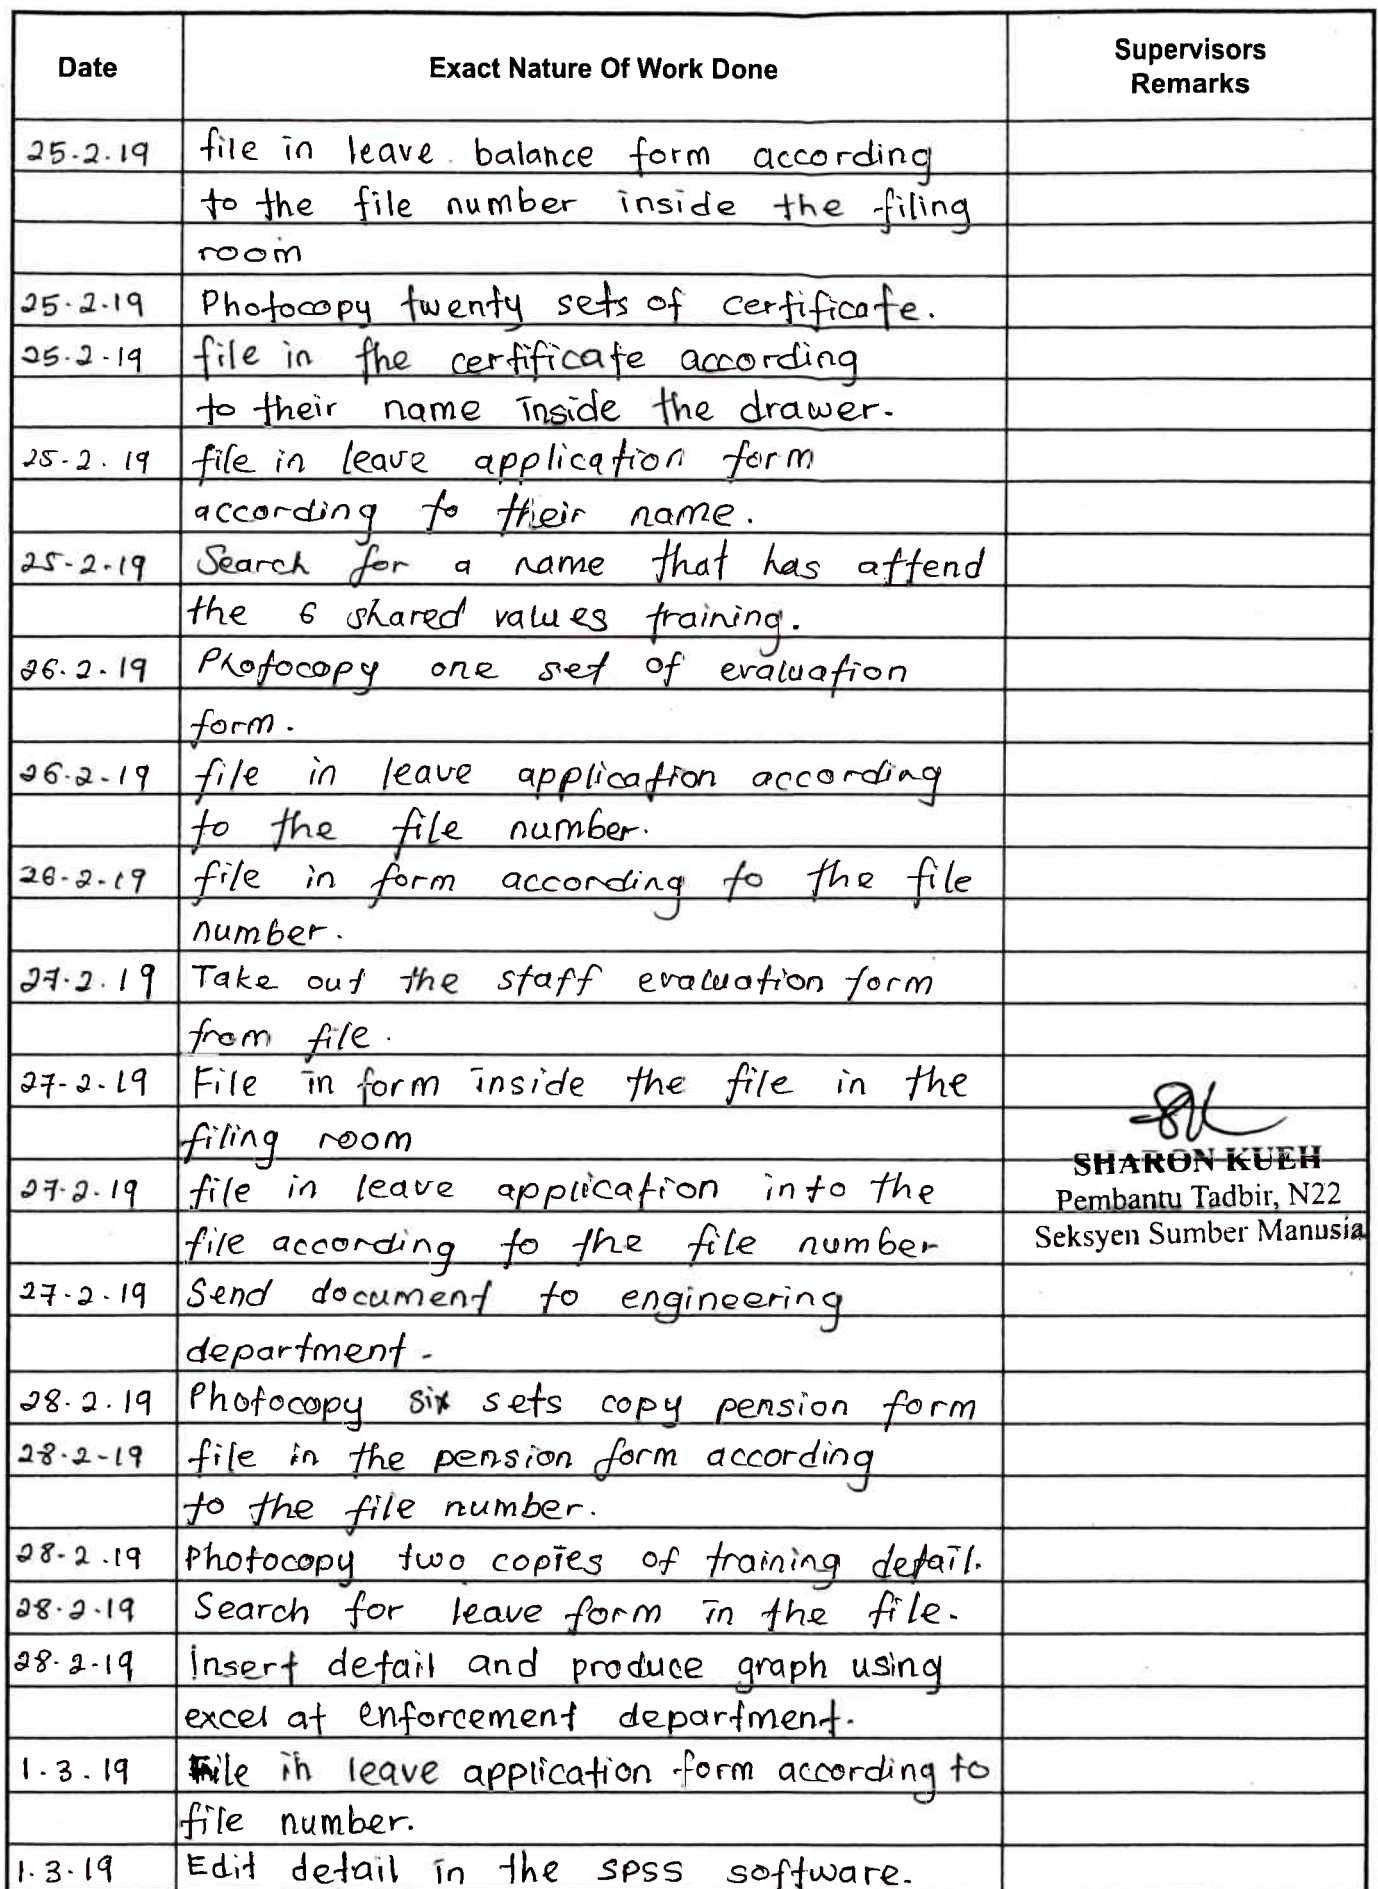 Date Exact Nature Of Work Done Supervisors
Remarks
25.2.19 file in leave balance form according
to the file number inside the filing
room
25.2.19 Photocopy twenty sets of certificate.
25-2-19 file in the certificate according
to their name inside the drawer.
25-2.19 file in leave application form
according to their name.
25-2-19 Search for a name that has attend
the 6 shared values training.
26.2.19 Photocopy one set of evaluation
form.
26.2-19 file in leave application according
to the file number.
26-2-19 file in form according to the file
number.
27.2.19 Take out the staff evaluation form
from file.
27-2.19 File in form inside the file in the
filing room
SHARON KUEH
27.2.19 file in leave application into the
Pembantu Tadbir, N22
file according to the file number
Seksyen Sumber Manusia
27.2.19 Send document to engineering
department.
28.2.19 Photocopy six sets copy pension form
28.2-19 file in the pension form according
to the file number.
28-2.19 Photocopy two copies of training detail.
28.2.19 Search for leave form in the file.
28.2-19 insert detail and produce graph using
excel at enforcement department.
1.3.19 File in leave application form according to
file number.
1.3.19 Edit detail in the SPSS software.